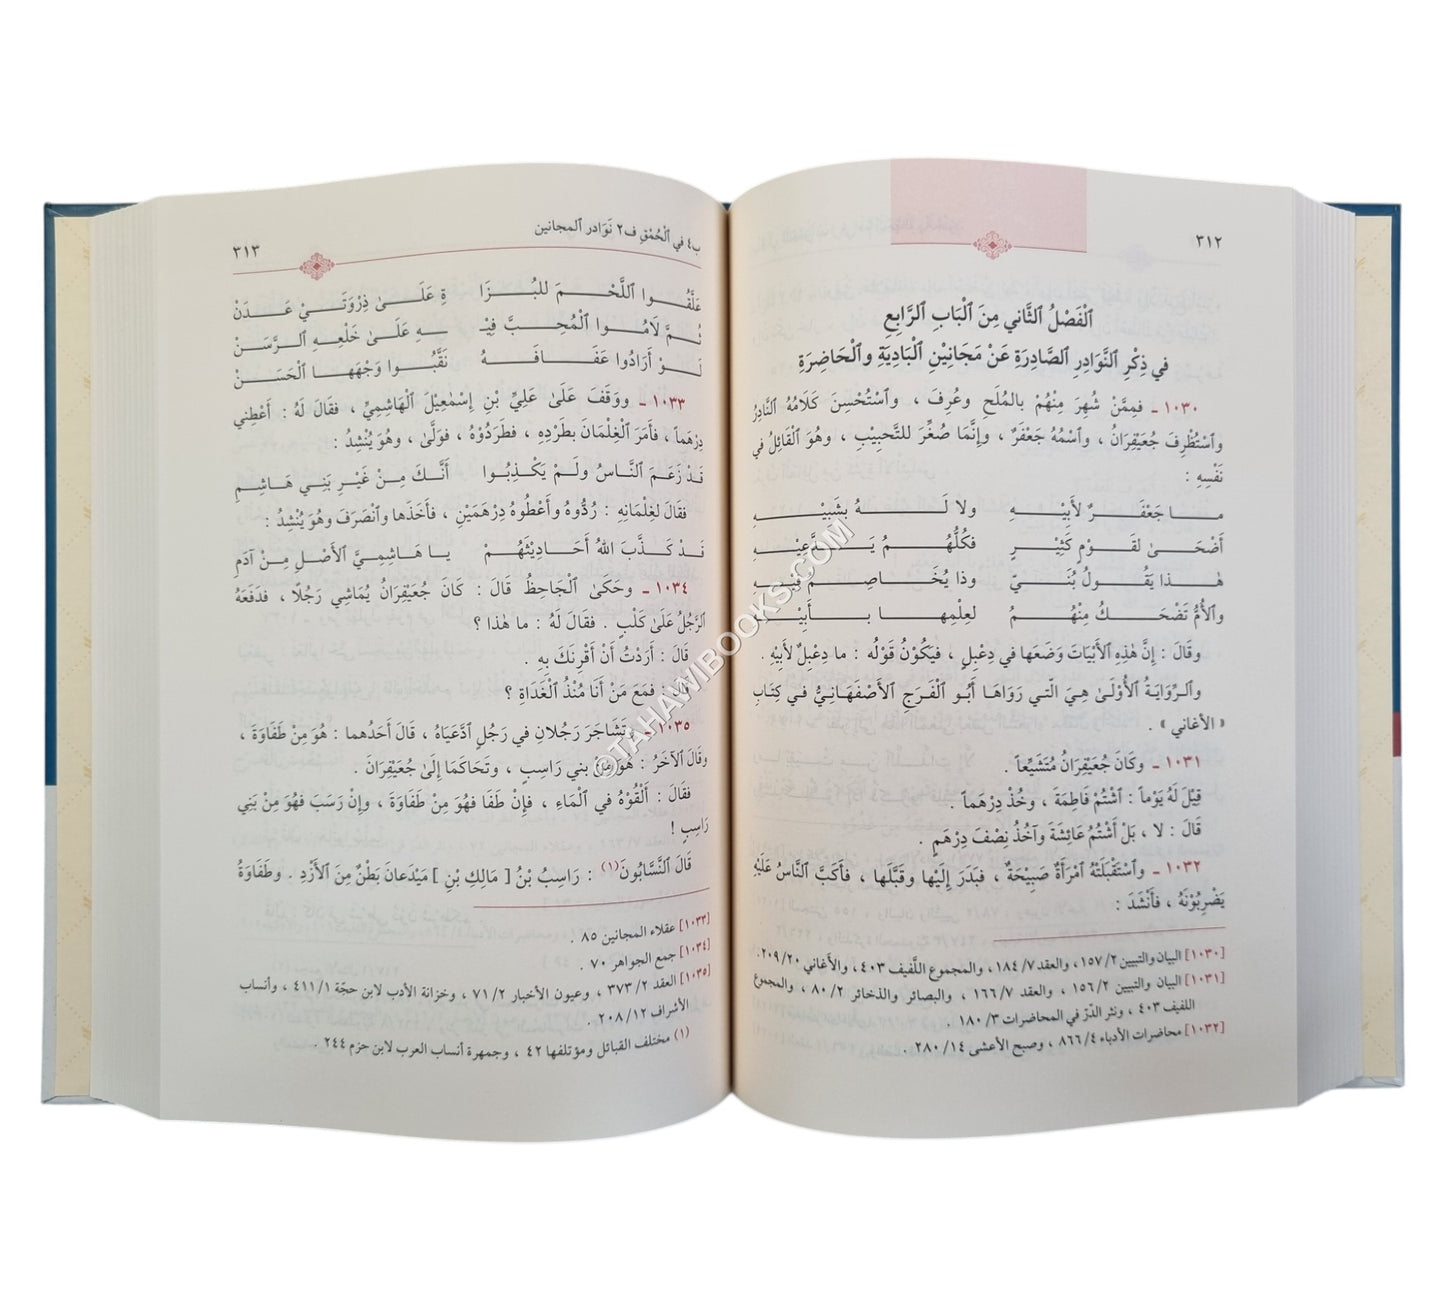 ٣١٢
ٱلْفَصْلُ ٱلثَّاني مِنَ ٱلْبَابِ ٱلرَّابِعِ
في ذِكْرِ ٱلنَّوَادِرِ ٱلصَّادِرَةِ عَنْ مَجَانِيْنِ ٱلْبَادِيَةِ وٱلْحَاضِرَةِ
١٠٣٠ ـ فمِمَّنْ شُهِرَ مِنْهُمْ بالمُلَحِ وعُرِفَ ، وٱسْتُحْسِنَ كَلَامُهُ النَّادِرُ
وٱسْتُظْرِفَ جُعَيْفِرَانُ ، وٱسْمُهُ جَعْفَرٌ ، وإِنَّمَا صُغِّرَ للتَّحبِيْبِ ، وهُوَ ٱلْقَائِلُ في
نَفْسِهِ :
مــا جَعْفَــرٌ لأَبِيْــهِ ولا لَــهُ بشَبِيْــهِ
أَضْحَىٰ لقَوْمٍ كَثِيْرٍ فكُلُّهُــمْ يَــدَّعِيْهِ
هٰـذا يَقُـولُ بُنَـيّ وذا يُخَـاصِـمُ فِيْهِ
والأُمُّ تَضْحَــكُ مِنْهُــمُ لعِلْمِهــا بــأَبِيْــهِ
وقَالَ : إِنَّ هٰذِهِ ٱلأَبْيَاتَ وَضَعَها في دِعْبِلٍ ، فيَكُوْنُ قَوْلُه : ما دِعْبِلٌ لأَبِيْهِ .
وٱلـرِّوَايَةُ ٱلأُوْلَىٰ هِيَ ٱلّتي رَوَاهَا أَبُو ٱلْفَرَجِ ٱلأَصْفَهَانِيُّ في كِتَابِ
« الأغاني » .
١٠٣١ ـ وكَانَ جُعَيْفِرَانُ مُتَشَيِّعاً .
قِيْلَ لَهُ يَوْماً : ٱشْتُمْ فَاطِمَةَ ، وخُذْ دِرْهَماً .
قَالَ : لا ، بَلْ أَشْتُمُ عَائِشَةَ وآخُذُ نِصْفَ دِرْهَمٍ .
١٠٣٢ ـ وٱسْتَقْبَلَتْهُ ٱمْرَأَةٌ صَبِيْحَةٌ ، فبَدَرَ إِلَيْها وقَبَّلَها ، فأَكَبَّ النَّاسُ عَلَيْهِ
يَضْرِبُوْنَهُ ، فأَنْشَدَ :
[١٠٣٠] البيان والتبيين ٢/ ١٥٧ ، والعقد ٧/ ١٨٤ ، والمجموع اللّفيف ٤٠٣ ، والأغاني ٢٠/ ٢٠٩ .
[١٠٣١] البيان والتبيين ٢/ ١٥٦ ، والعقد ٧/ ١٦٦ ، والبصائر والذخائر ٢/ ٨٠ ، والمجموع
اللفيف ٤٠٣ ، ونثر الدّرّ في المحاضرات ٣/ ١٨٠ .
[١٠٣٢] محاضرات الأدباء ٤/ ٨٦٦ ، وصبح الأعشى ١٤/ ٢٨٠ .
ب٤ في ٱلْحُمْقِ ف٢ نَوَادر ٱلمجانين
٣١٣
عَلَّقُـوا ٱللَّحْـمَ للبُـزَا ةِ عَلَـىٰ ذِرْوَتَـيْ عَـدَنْ
ثُـمَّ لَامُـوا ٱلْمُحِـبَّ فِيْـ ـهِ عَلَـىٰ خَلْعِـهِ ٱلـرَّسَـنْ
لَـوْ أَرَادُوا عَفَـافَـهُ نَقَّبُـوا وَجْهَهـا ٱلْحَسَـنْ
١٠٣٣ ـ ووَقَفَ عَلَىٰ عَلِيِّ بْنِ إِسْمٰعِيْلَ ٱلْهَاشِمِيِّ ، فقَالَ لَهُ : أَعْطِني
دِرْهَماً ، فأَمَرَ ٱلْغِلْمَانَ بطَرْدِهِ ، فطَرَدُوْهُ ، فوَلَّىٰ ، وهُوَ يُنْشِدُ :
قَدْ زَعَمَ ٱلنَّاسُ ولَمْ يَكْذِبُوا أَنَّكَ مِنْ غَيْرِ بَنِي هَاشِمِ
فقَالَ لغِلْمَانِهِ : رُدُّوهُ وأَعْطُوهُ دِرْهَمَيْنِ ، فأَخَذَها وٱنْصَرَفَ وهُوَ يُنْشِدُ :
قَدْ كَذَّبَ اللهُ أَحَادِيْثَهُمْ يا هَاشِمِيَّ ٱلأَصْلِ مِنْ آدَمِ
١٠٣٤ ـ وحَكَىٰ ٱلْجَاحِظُ قَالَ : كَانَ جُعَيْفِرَانُ يُمَاشِي رَجُلًا ، فدَفَعَهُ
ٱلرَّجُلُ عَلَىٰ كَلْبٍ . فقَالَ لَهُ : ما هٰذا ؟
قَالَ : أَرَدْتُ أَنْ أَقْرِنَكَ بِهِ .
قَالَ : فمَعَ مَنْ أَنَا مُنْذُ ٱلْغَدَاةِ ؟
١٠٣٥ ـ وتَشَاجَرَ رَجُلانِ في رَجُلٍ ٱدَّعَيَاهُ ، قَالَ أَحَدُهما : هُوَ مِنْ طَفَاوَةَ ،
وقَالَ ٱلآخَرُ : هُوَ مِنْ بني رَاسِبٍ ، وتَحَاكَمَا إِلَىٰ جُعَيْفِرَانَ .
فقَالَ : أَلْقُوْهُ في ٱلْمَاءِ ، فإِنْ طَفَا فهُوَ مِنْ طَفَاوَةَ ، وإِنْ رَسَبَ فهُوَ مِنْ بَنِي
رَاسِبٍ !
قَالَ ٱلنَّسَّابُونَ(١) : رَاسِبُ بْنُ [ مَالِكِ بْنِ ] مَيْدَعانَ بَطْنٌ مِنَ ٱلأَزْدِ . وطَفَاوَةُ
[١٠٣٣] عقلاء المجانين ٨٥ .
[١٠٣٤] جمع الجواهر ٧٠ .
[١٠٣٥] العقد ٢/ ٣٧٣ ، وعيون الأخبار ٢/ ٧١ ، وخزانة الأدب لابن حجّة ١/ ٤١١ ، وأنساب
الأشراف ١٢/ ٢٠٨ .
(١) مختلف القبائل ومؤتلفها ٤٢ ، وجمهرة أنساب العرب لابن حزم ٢٤٤ .
©TAHAWIBOOKS.COM